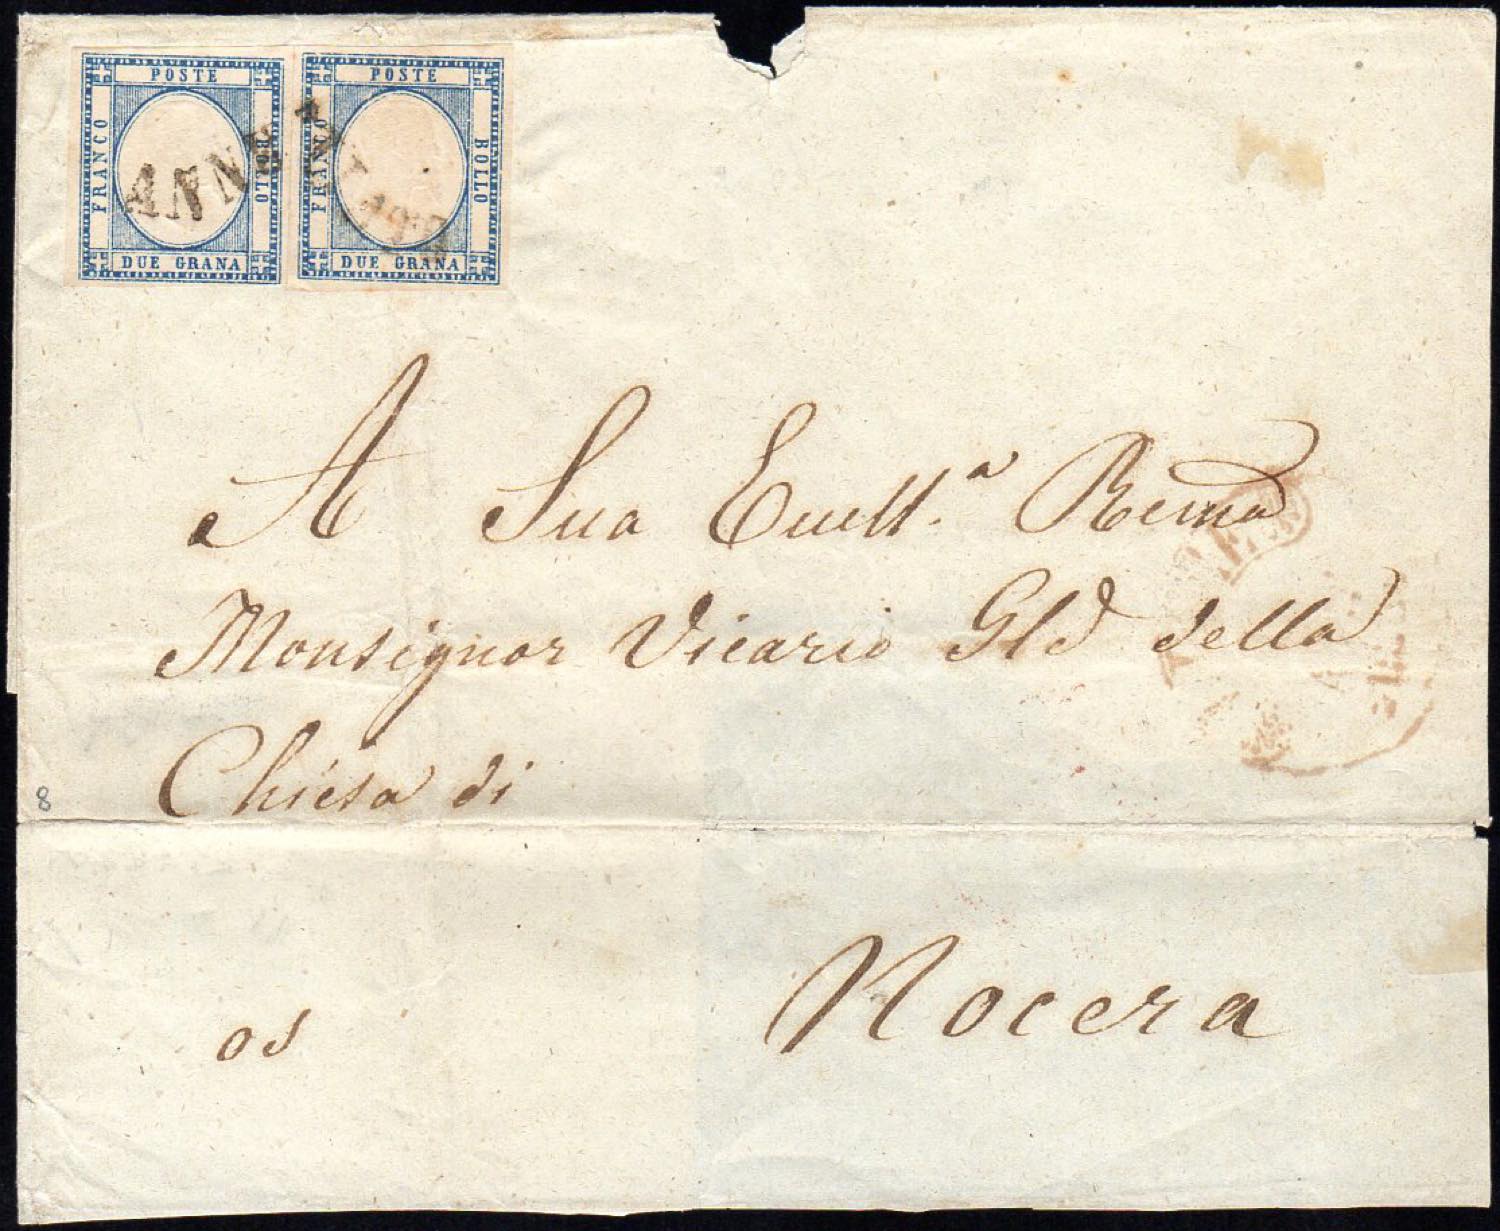 POSTE
FRANCO
BOLLO
DUE GRANA
POSTE
FRANCO
BOLLO
DUE GRANA
ANNULLATO
A Sua Eccell.ª Rema
Monsignor Vicario Gle della
Chiesa di
8
os Nocera